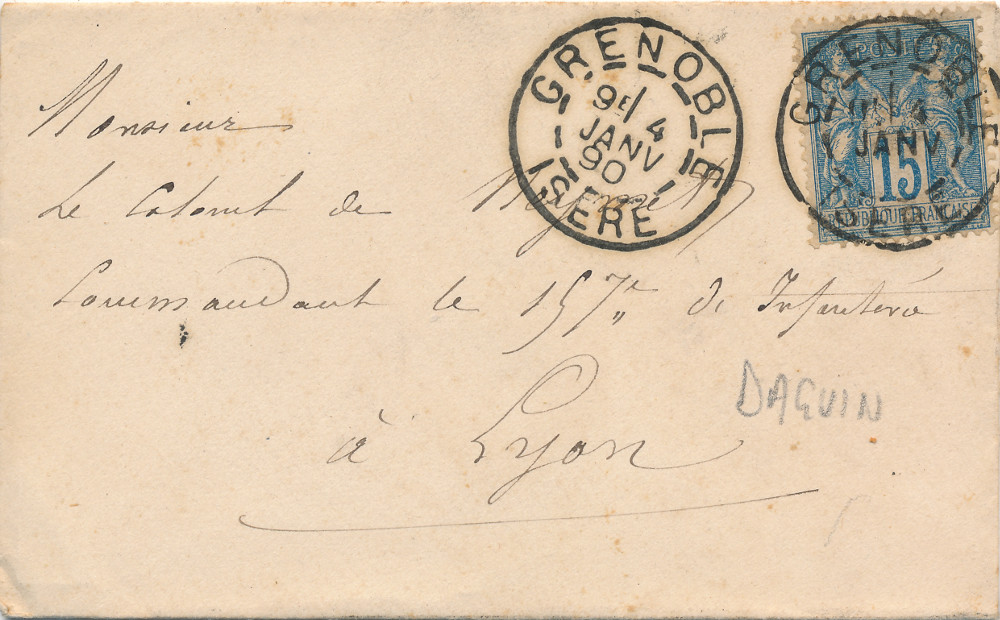 GRENOBLE
9E/ 4
JANV
90
ISÈRE
GRENOBLE
4
JANV
POSTE
15
REPUBLIQUE FRANÇAISE
Monsieur
Le Colonel de
Commandant le 157e di Infanterie
DAGUIN
à Lyon